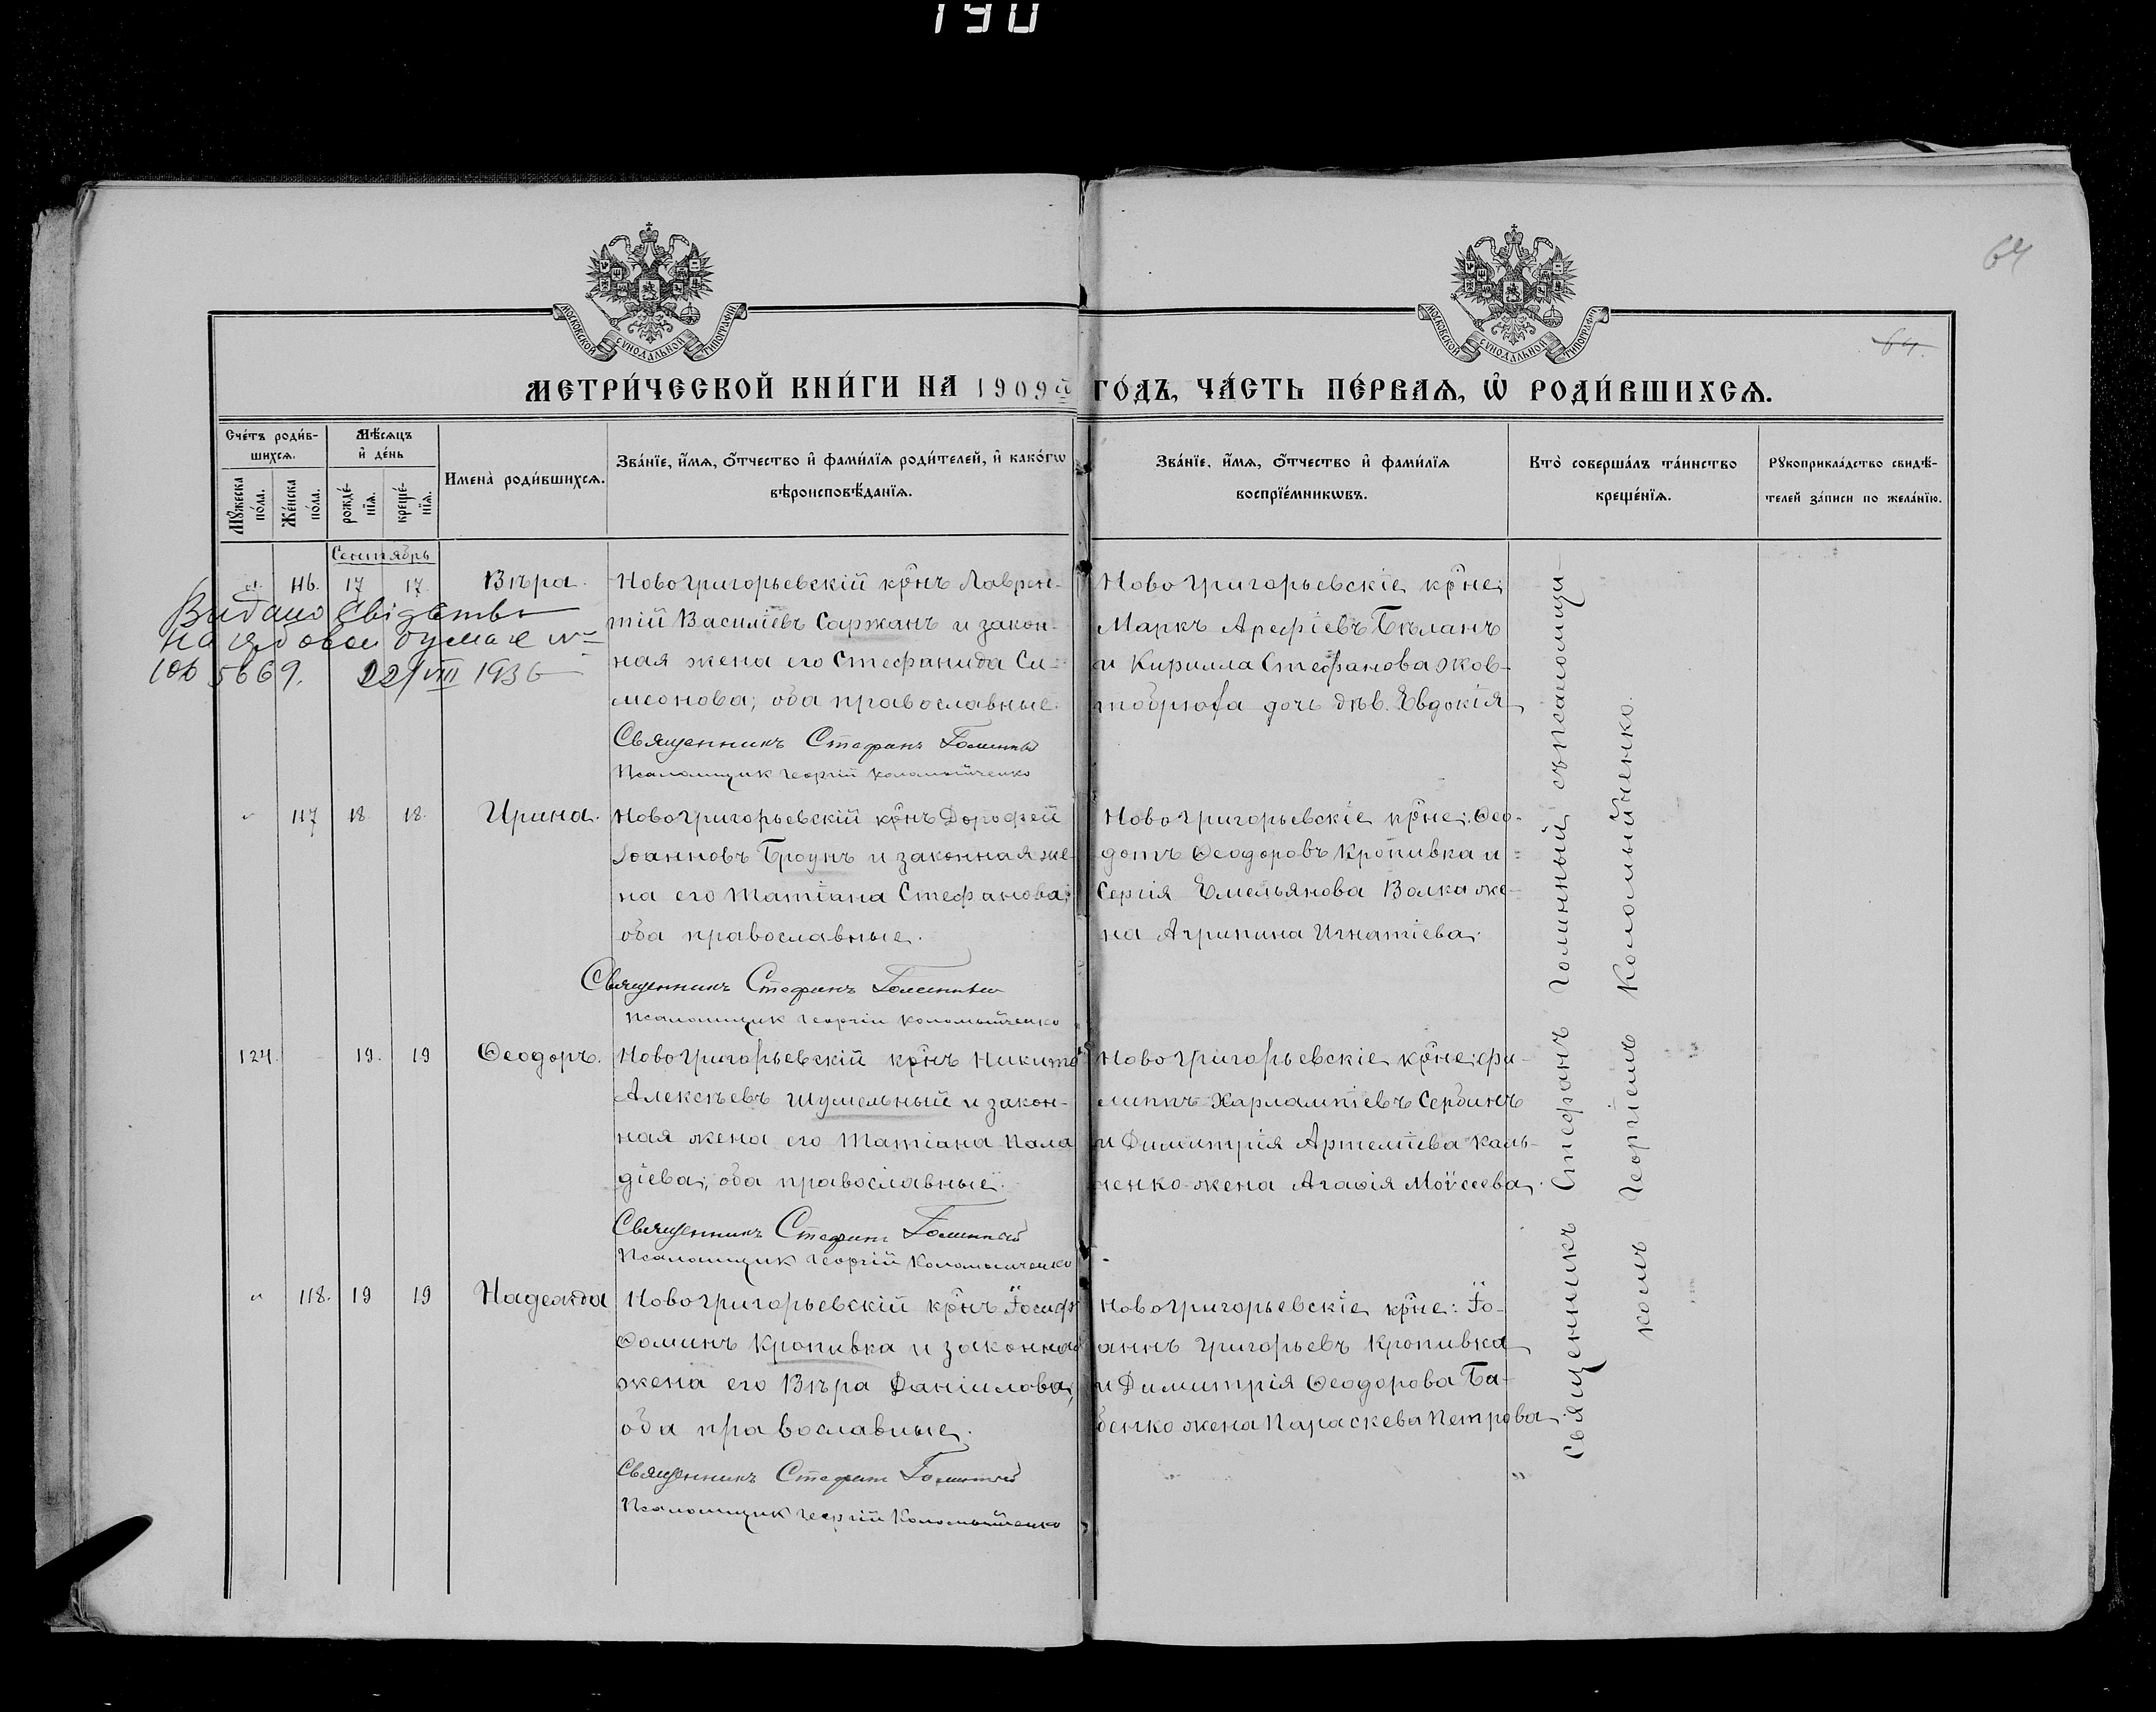 190
64
64.
МОСКОВСКОЙ СѴНОДАЛЬНОЙ ТИПОГРАФІИ
МОСКОВСКОЙ СѴНОДАЛЬНОЙ ТИПОГРАФІИ
МЕТРИ́ЧЕСКОЙ КНИ́ГИ НА 1909й ГО́ДЪ, ЧА́СТЬ ПЕ́РВАѦ, Ѡ҆ РОДИ́ВШИХСѦ.
Сче́тъ роди́в-
шихсѧ.
Мꙋ́жеска по́ла.
Же́нска по́ла.
Мѣ́сѧцъ
и҆ де́нь
рожде́-
нїѧ.
креще́-
нїѧ.
Имена̀ роди́вшихсѧ.
Зва́нїе, и҆́мѧ, ѻ҆́тчество и҆ фами́лїѧ роди́телей, и҆ како́гѡ
вѣроисповѣ́данїѧ.
Зва́нїе, и҆́мѧ, ѻ҆́тчество и҆ фами́лїѧ
воспрїе́мникѡвъ.
Кто̀ соверша́лъ та́инство
креще́нїѧ.
Рꙋкоприкла́дство свидѣ́-
телей за́писи по жела́нїю.
Сентябрь
116. 17 17. Вѣра.
Новогригорьевскій кр̂нъ Лаврен-
тій Василіевъ Саржанъ и закон-
ная жена его Стефанида Си-
меонова; оба православные.
Священникъ Стефанъ Голинный
Псаломщик Георгій Коломыйченко
Новогригорьевскіе кр̂не:
Маркъ Арефіевъ Бѣланъ
и Кирилла Стефанова Жов-
тобрюха дочь дѣв. Евдокія
Видано
22/VIII 1936
" 117 18 18. Ирина.
Новогригорьевскій кр̂нъ Дорофей
Іоанновъ Броунъ и законная же-
на его Татіана Стефанова;
оба православные.
Священникъ Стефанъ Голинный
Псаломщик Георгій Коломыйченко
Новогригорьевскіе кр̂не: Ѳео-
дотъ Ѳеодоровъ Кропивка и
Сергія Емельянова Волка же-
на Агрипина Игнатіева.
124. 19. 19 Ѳеодоръ.
Новогригорьевскій кр̂нъ Никита
Алексѣевъ Шумельный и закон-
ная жена его Татіана Пала
діева; оба православные.
Священникъ Стефанъ Голинный
Псаломщик Георгій Коломыйченко
Новогригорьевскіе кр̂не: Фи-
липпъ Харлампіевъ Сербинъ
и Димитрія Артеміева Каль-
ченко жена Агафія Моѵсеева.
" 118. 19 19 Надежда
Новогригорьевскій кр̂нъ Іосифъ
Ѳоминъ Кропивка и законная
жена его Вѣра Даніилова;
оба православные.
Священникъ Стефанъ Голинный
Псаломщик Георгій Коломыйченко
Новогригорьевскіе кр̂не: Іо-
аннъ Григорьевъ Кропивка
и Димитрія Ѳеодорова Ба-
бенко жена Параскева Петрова.
Священникъ Стефанъ Голинный съ псаломщи-
комъ Георгіемъ Коломыйченко.